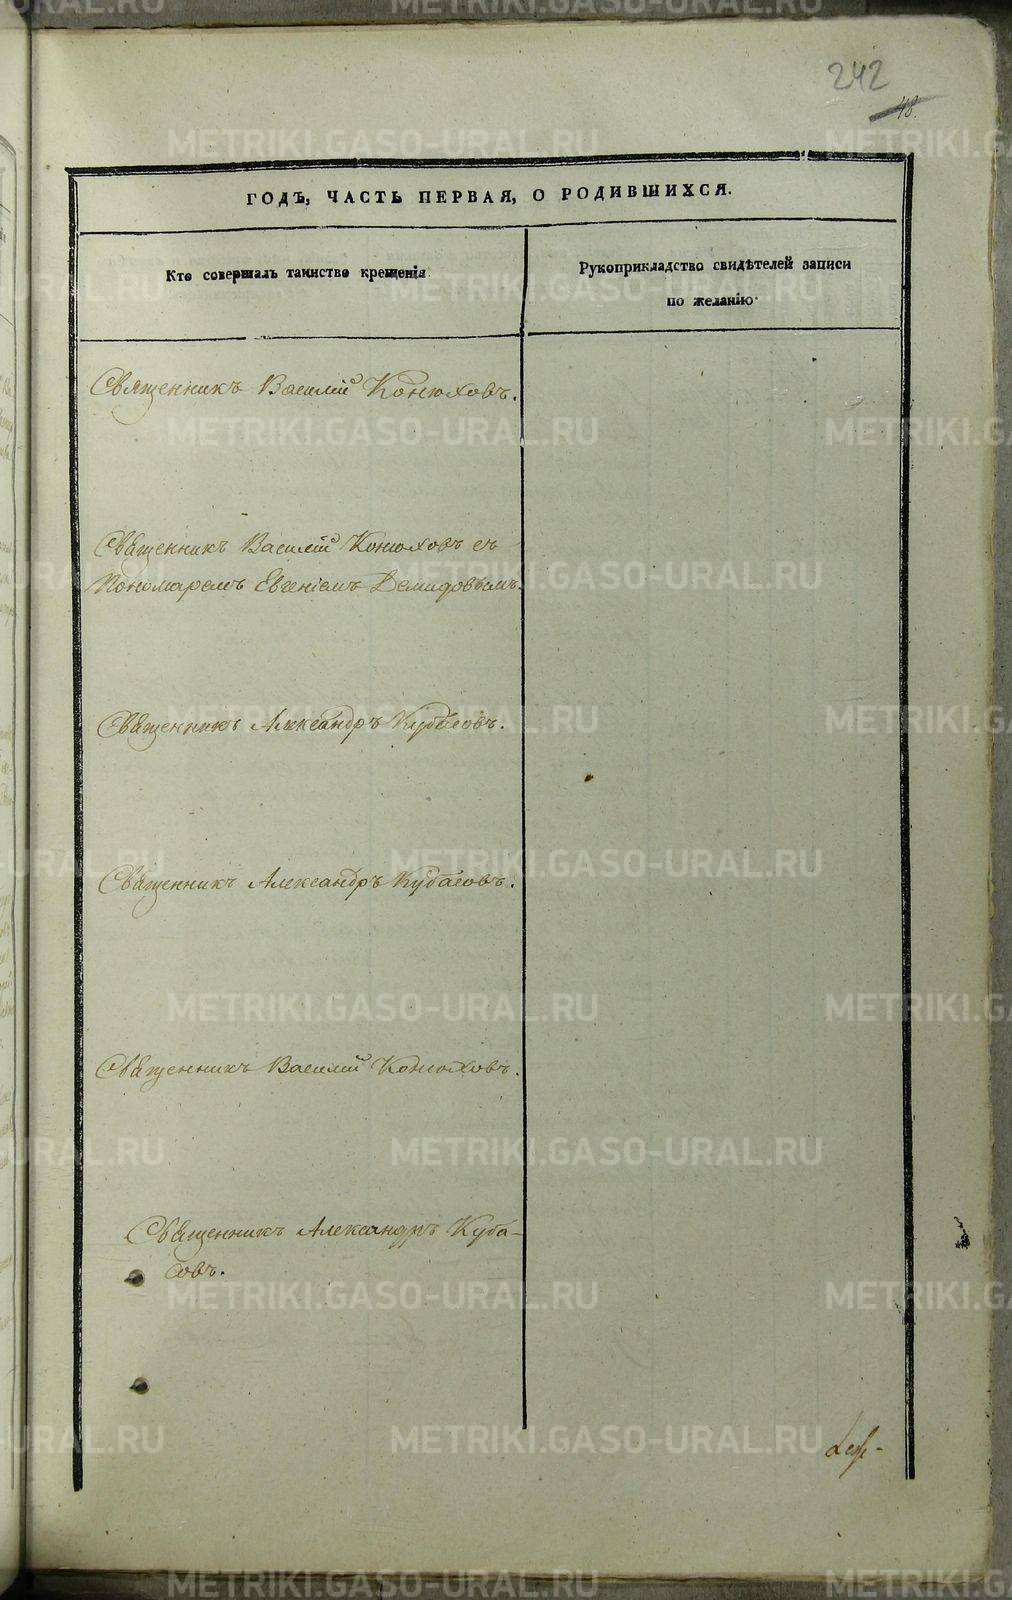 242
48.
ГОДЪ, ЧАСТЬ ПЕРВАЯ, О РОДИВШИХСЯ.
Кто совершалъ таинство крещенія
Рукоприкладство свидѣтелей записи
по желанію
Священникъ Василій Конюховъ.
Священникъ Василій Конюховъ съ
Пономаремъ Евгеніемъ Демидовымъ.
Священникъ Александръ Кубасовъ.
Священникъ Александръ Кубасовъ.
Священникъ Василій Конюховъ.
Священникъ Александръ Куба-
совъ.
METRIKI.GASO-URAL.RU